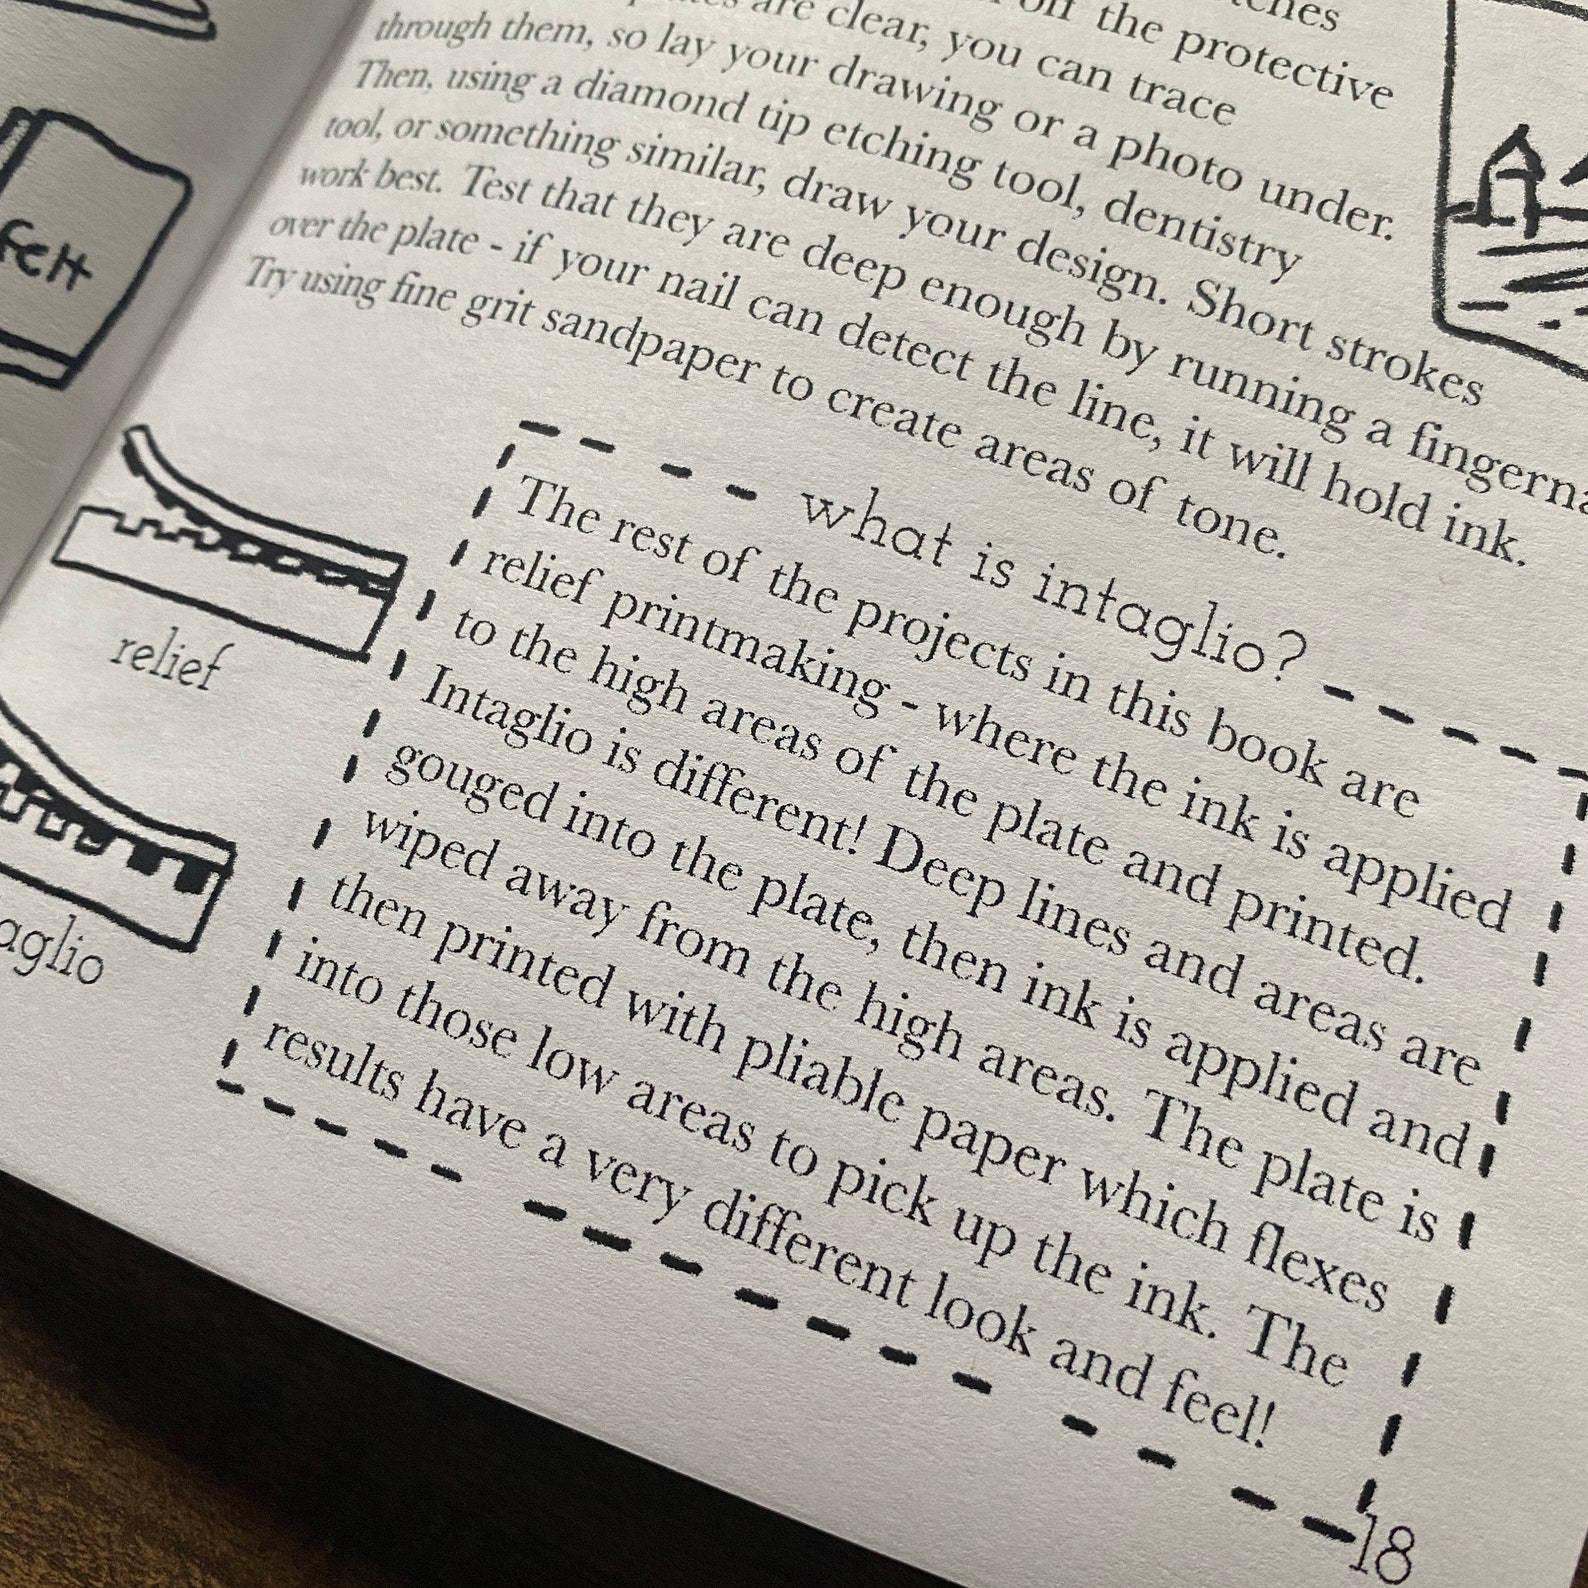 off the protective
are clear, you can trace
through them, so lay your drawing or a photo under.
Then, using a diamond tip etching tool, dentistry
tool, or something similar, draw your design. Short strokes
work best. Test that they are deep enough by running a
over the plate - if your nail can detect the line, it will hold ink.
Try using fine grit sandpaper to create areas of tone.
relief
what is intaglio?
The rest of the projects in this book are
relief printmaking - where the ink is applied
to the high areas of the plate and printed.
Intaglio is different! Deep lines and areas are
gouged into the plate, then ink is applied and
wiped away from the high areas. The plate is
then printed with pliable paper which flexes
into those low areas to pick up the ink. The
results have a very different look and feel!
18